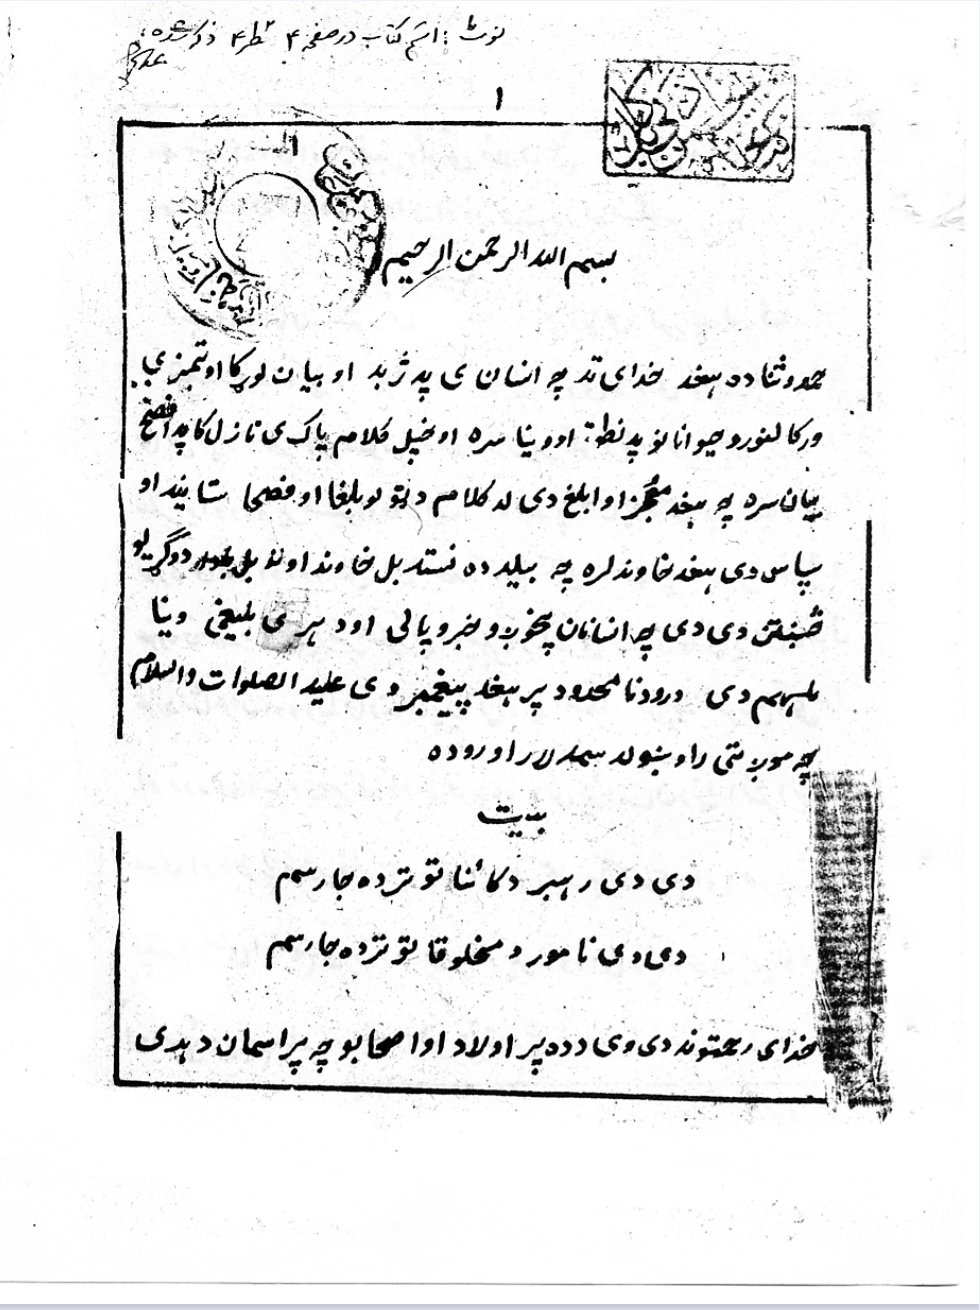 نوټ: اسم کتاب در صفحه ۴ سطر ۴ ذکر شده
۱
بسم الله الرحمن الرحیم
حمد و ثنا ده هغه خدای ته چه انسان ی په ژبه او بیان لوړ کا او تمیز ی
ورکا له نورو حیوانانو په نطق او وینا سره او خپل کلام پاک ی نازل کا په افصح
بیان سره چه هغه معجز او ابلغ دی له کلام د ټولو بلغا او فصحا ستاینه او
سپاس دی هغه خاوند لره چه بیله ده نسته بل خاوند او نه بل د وګړیو
څښتن دی دی چه انسانان پخوي او خبرو پالی او د هر ی بلیغی وینا
ملهم دی درود نامحدود پر هغه پیغمبر وی علیه الصلوات والسلام
چه موږ ته ی راوښوله سمه لار او روده
بیت
دی دی رهبر د کائناتو تر ده جار سم
دی دی نامور د مخلوقاتو تر ده جار سم
خدای رحمتونه دی وی د ده پر اولاد او اصحابو چه پر اسمان د هدی